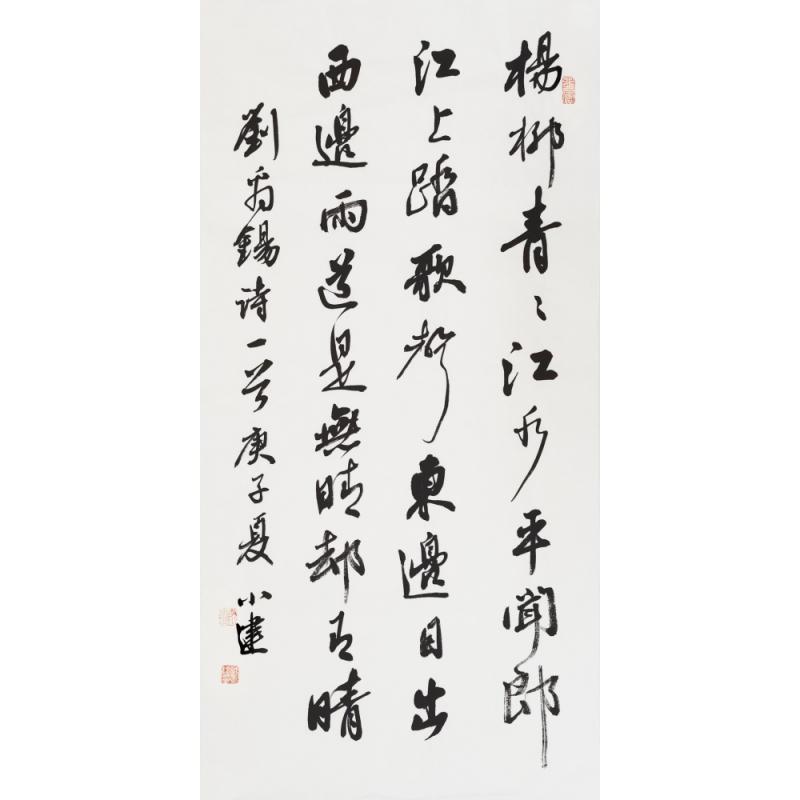 楊柳青〻江水平聞郎
江上踏歌聲東邊日出
西邊雨道是無晴卻有晴
劉禹錫詩一首庚子夏小建